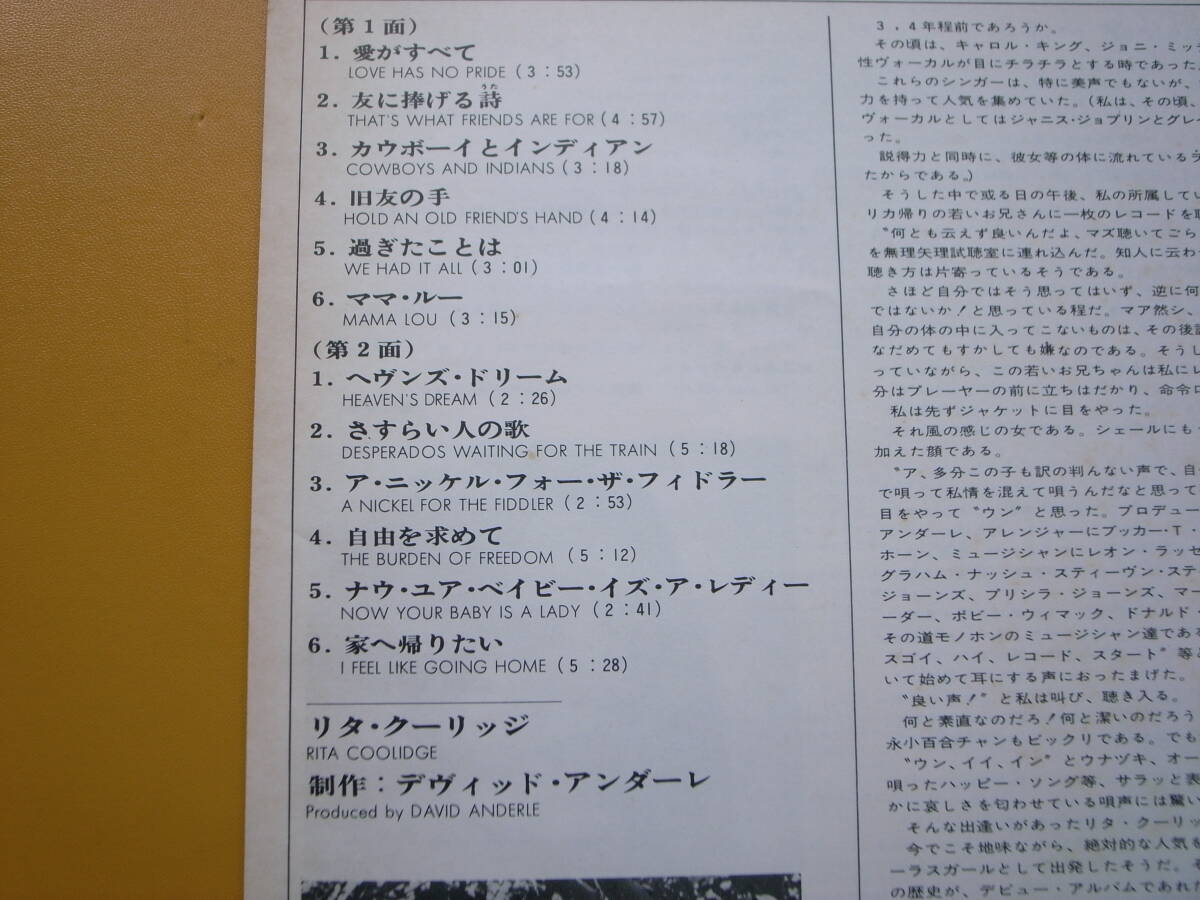 (第1面)
1. 愛がすべて
LOVE HAS NO PRIDE (3:53)
2. 友に捧げる詩
うた
THAT'S WHAT FRIENDS ARE FOR (4:57)
3. カウボーイとインディアン
COWBOYS AND INDIANS (3:18)
4. 旧友の手
HOLD AN OLD FRIEND'S HAND (4:14)
5. 過ぎたことは
WE HAD IT ALL (3:01)
6. ママ・ルー
MAMA LOU (3:15)
(第2面)
1. ヘヴンズ・ドリーム
HEAVEN'S DREAM (2:26)
2. さすらい人の歌
DESPERADOS WAITING FOR THE TRAIN (5:18)
3. ア・ニッケル・フォー・ザ・フィドラー
A NICKEL FOR THE FIDDLER (2:53)
4. 自由を求めて
THE BURDEN OF FREEDOM (5:12)
5. ナウ・ユア・ベイビー・イズ・ア・レディー
NOW YOUR BABY IS A LADY (2:41)
6. 家へ帰りたい
I FEEL LIKE GOING HOME (5:28)
リタ・クーリッジ
RITA COOLIDGE
制作：デヴィッド・アンダーレ
Produced by DAVID ANDERLE
3,4年程前であろうか。
その頃は、キャロル・キング、ジョニ・ミッ
性ヴォーカルが目にチラチラとする時であった
これらのシンガーは、特に美声でもないが、
力を持って人気を集めていた。(私は、その頃、
ヴォーカルとしてはジャニス・ジョプリンとグレー
った。
説得力と同時に、彼女等の体に流れている
たからである。)
そうした中で或る日の午後、私の所属してい
リカ帰りの若いお兄さんに一枚のレコードを
〝何とも云えず良いんだよ、マズ聴いてごら
を無理矢理試聴室に連れ込んだ。知人に云わ
聴き方は片寄っているそうである。
さほど自分ではそう思ってはいず、逆に何
ではないか！と思っている程だ。マア然シ、
自分の体の中に入ってこないものは、その後
なだめてもすかしても嫌なのである。そうし
っていながら、この若いお兄ちゃんは私にレ
分はプレーヤーの前に立ちはだかり、命令口
私は先ずジャケットに目をやった。
それ風の感じの女である。シェールにも
加えた顔である。
〝ア、多分この子も訳の判んない声で、自
で唄って私情を混えて唄うんだなと思って
目をやって〝ウン〞と思った。プロデュー
アンダーレ、アレンジャーにブッカー・T・
ホーン、ミュージシャンにレオン・ラッセ
グラハム・ナッシュ・スティーヴン・ステ
ジョーンズ、プリシラ・ジョーンズ、マー
ーダー、ボビー・ウィマック、ドナルド・
その道モノホンのミュージシャン達である
スゴイ、ハイ、レコード、スタート〞等
いて始めて耳にする声におったまげた。
〝良い声！〞と私は叫び、聴き入る。
何と素直なのだろ！何と潔いのだろう
永小百合チャンもビックリである。でも
〝ウン、イイ、イン〞とウナヅキ、オー
唄ったハッピー・ソング等、サラッと表
かに哀しさを匂わせている唄声には驚い
そんな出逢いがあったリタ・クーリッ
今でこそ地味ながら、絶対的な人気を
ーラスガールとして出発したそうだ。
の歴史が、デビュー・アルバムであれた